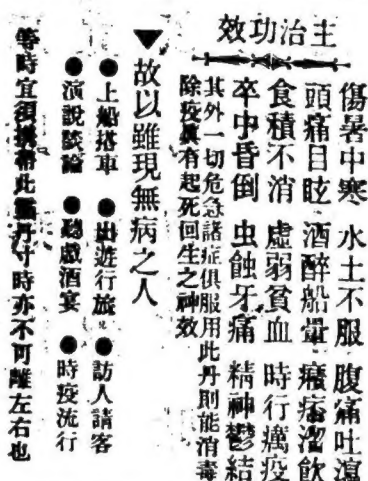 主治功效
傷暑中寒 水土不服 腹痛吐瀉
頭痛目眩 酒醉船暈 癨痧溜飲
食積不消 虛弱貧血 時行癘疫
卒中昏倒 虫蝕牙痛 精神鬱結
其外一切危急諸症俱服用此丹則能消毒
除疫眞有起死回生之神效
▼故以雖現無病之人
●上船搭車 ●出遊行旅 ●訪人請客
●演說談論 ●聽戲酒宴 ●時疫流行
等時宜須攜帶此靈丹寸時亦不可離左右也